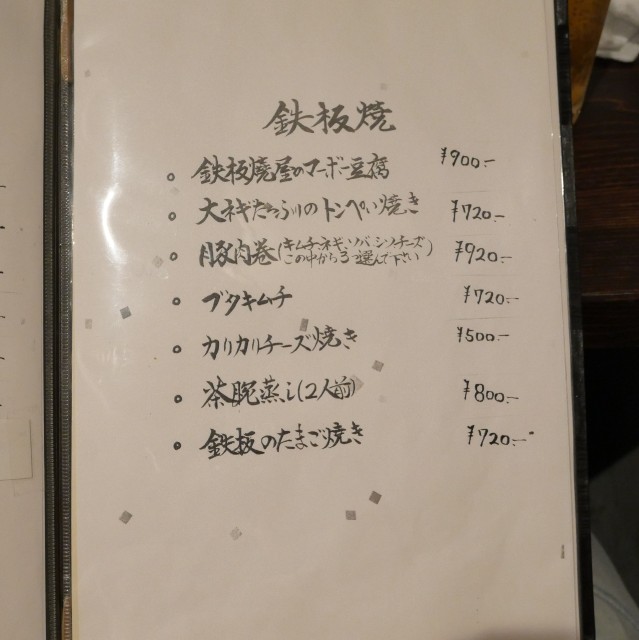 鉄板焼
鉄板焼屋のマーボー豆腐 ¥900.-
大ネギたっぷりのトンペい焼き ¥720.-
豚肉巻(キムチ、ネギ、ソバ、シソチーズ この中から3つ選んで下さい) ¥920-
ブタキムチ ¥720.-
カリカリチーズ焼き ¥500.-
茶腕蒸し(2人前) ¥800.-
鉄板のたまご焼き ¥720.-